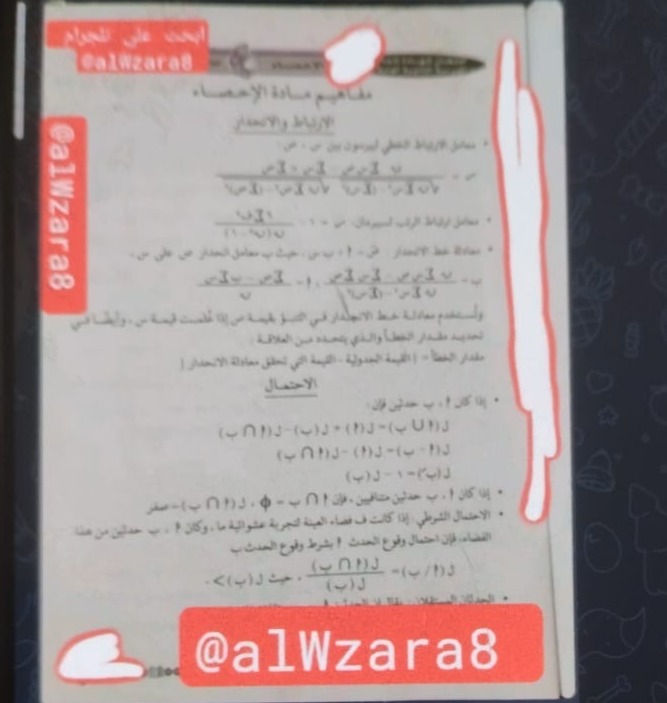 ابحث على تلجرام
@alWzara8
@alWzara8
مفاهيم مادة الإحصاء
الارتباط والانحدار
• معامل الارتباط الخطي لبيرسون بين س ، ص :
• معامل ارتباط الرتب لسبيرمان :
• معادلة خط الانحدار : ص^ = أ + ب س ، حيث ب معامل انحدار ص على س .
وتُستخدم معادلة خط الانحدار في التنبؤ بقيمة ص إذا عُلمت قيمة س ، وأيضًا في
تحديد مقدار الخطأ والذي يتحدد من العلاقة :
مقدار الخطأ = | القيمة الجدولية - القيمة التي تحقق معادلة الانحدار |
الاحتمال
• إذا كان أ ، ب حدثين فإن :
ل(أ ∪ ب) = ل(أ) + ل(ب) - ل(أ ∩ ب)
ل(أ - ب) = ل(أ) - ل(أ ∩ ب)
ل(بَ) = ١ - ل(ب)
• إذا كان أ ، ب حدثين متنافيين ، فإن أ ∩ ب = ϕ ، ل(أ ∩ ب) = صفر
• الاحتمال الشرطي : إذا كانت ف فضاء العينة لتجربة عشوائية ما ، وكان أ ، ب حدثين من هذا
الفضاء، فإن احتمال وقوع الحدث أ بشرط وقوع الحدث ب
ل(أ / ب) = ل(أ ∩ ب) / ل(ب) ، حيث ل(ب) > ٠
@alWzara8